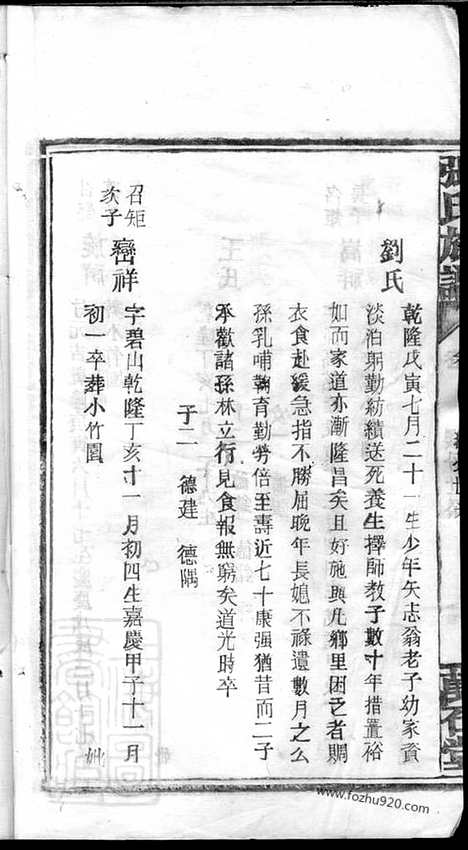 張氏族譜
劉氏
乾隆戊寅七月二十一生少年矢志翁老子幼家資
淡泊躬勤紡績送死養生擇師教子數十年措置裕
如而家道亦漸隆昌矣且好施與凡鄉里困乏者賙
衣食赴緩急指不勝屈晚年長媳不祿遺數月之么
孫乳哺鞠育勤勞倍至壽近七十康强猶昔而二子
承歡諸孫林立行見食報無窮矣道光時卒
子二 德建 德隅
召矩次子
巒祥
字碧山乾隆丁亥十一月初四生嘉慶甲子十一月
初一卒葬小竹園
www.fozhu920.com